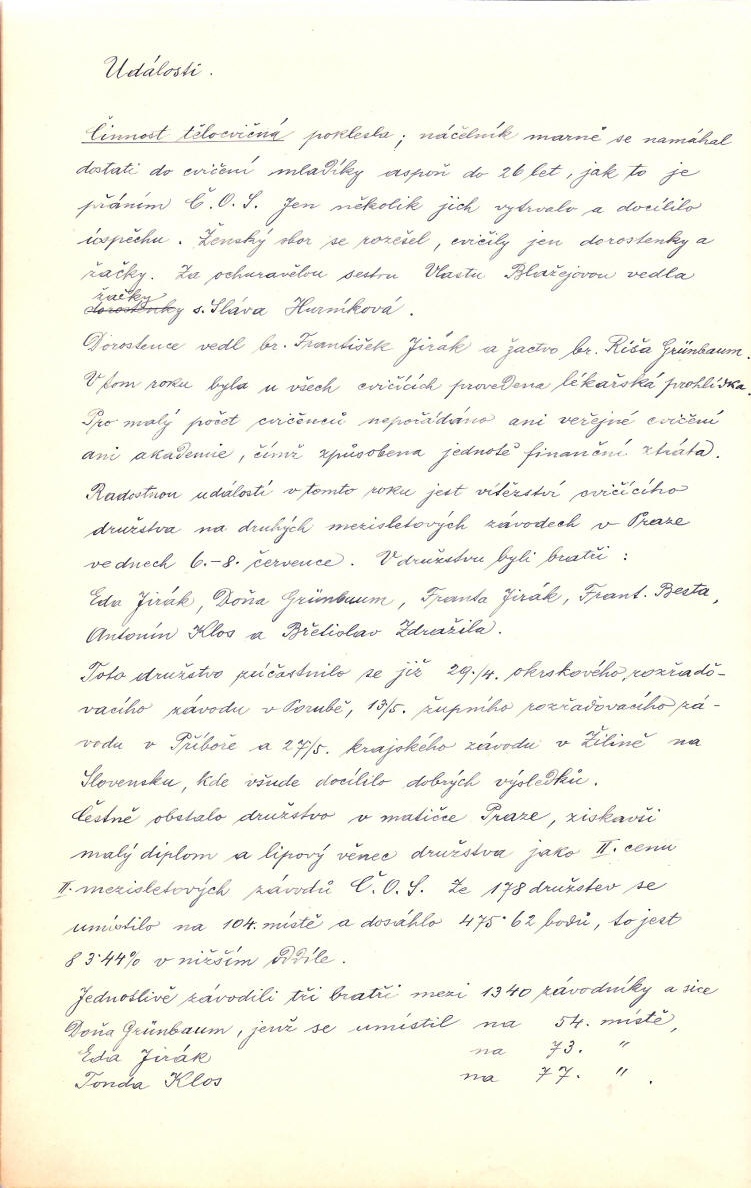 Události.
Činnost tělocvičná poklesla; náčelník marně se namáhal
dostati do cvičení mladíky aspoň do 26 let, jak to je
přáním Č.O.S. Jen několik jich vytrvalo a docílilo
úspěchu. Ženský sbor se rozešel, cvičily jen dorostenky a
žačky. Za ochuravělou sestru Vlastu Blažejovou vedla
žačky
dorostenky s. Sláva Hurníková.
Dorostence vedl br. František Jirák a žactvo br. Ríša Grünbaum.
V tom roku byla u všech cvičících provedena lékařská prohlídka.
Pro malý počet cvičenců nepořádáno ani veřejné cvičení
ani akademie, čímž způsobena jednotě finanční ztráta.
Radostnou událostí v tomto roku jest vítězství cvičícího
družstva na druhých mezisletových závodech v Praze
ve dnech 6.-8. července. V družstvu byli bratři:
Eda Jirák, Doňa Grünbaum, Franta Jirák, Frant. Besta,
Antonín Klos a Břetislav Zdražila.
Toto družstvo zúčastnilo se již 29./4. okrskového rozřaďo-
vacího závodu v Porubě, 13/5. župního rozřaďovacího zá-
vodu v Příboře a 27/5. krajského závodu v Žilině na
Slovensku, kde všude docílilo dobrých výsledků.
Čestně obstalo družstvo v matičce Praze, získavši
malý diplom a lipový věnec družstva jako II. cenu
II. mezisletových závodů Č.O.S. Ze 178 družstev se
umístilo na 104. místě a dosáhlo 475·62 bodů, to jest
83·44% v nižším oddíle.
Jednotlivě závodili tři bratři mezi 1340 závodníky a sice
Doňa Grünbaum, jenž se umístil na 54. místě,
Eda Jirák na 73. "
Tonda Klos na 77. " .